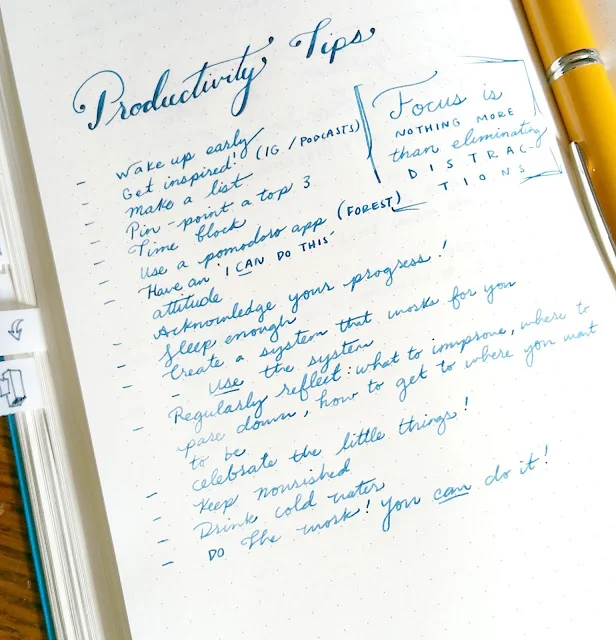 Productivity Tips
- Wake up early
- Get inspired! (IG / PODCASTS)
- Make a list
- Pin-point a top 3
- Time block
- Use a pomodoro app (FOREST)
- Have an 'I CAN DO THIS'
attitude
- Acknowledge your progress!
- Sleep enough
- Create a system that works for you
- Use the system
- Regularly reflect: what to improve, where to
pare down, how to get to where you want
to be
- celebrate the little things!
- Keep nourished
- Drink cold water
- DO The work! You can do it!
Focus is
NOTHING MORE
than eliminating
DISTRAC-
TIONS